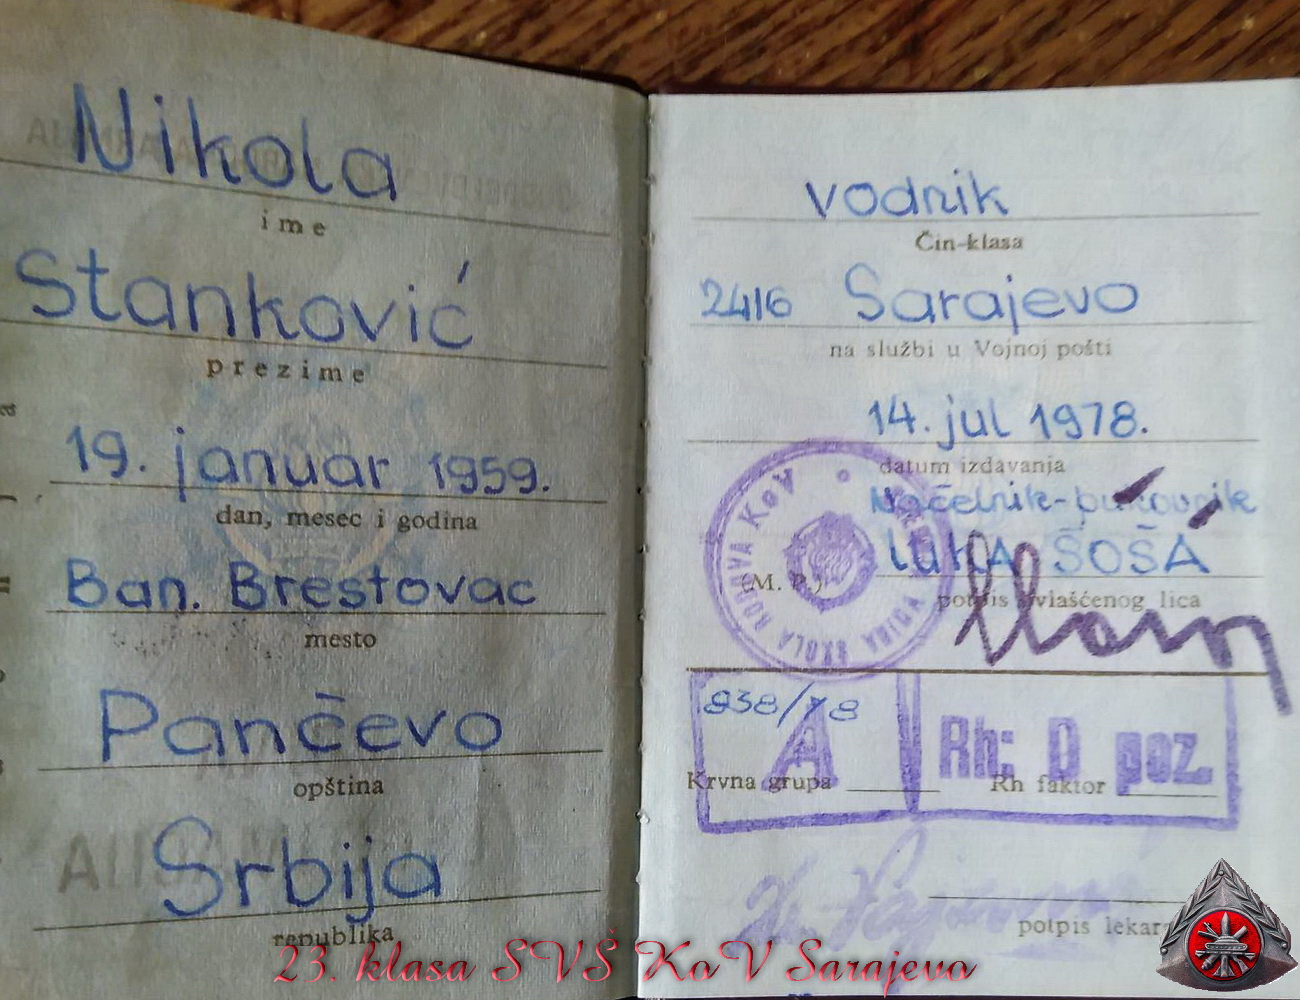 Nikola
ime
Stanković
prezime
19. januar 1959.
dan, mesec i godina
Ban. Brestovac
mesto
Pančevo
opština
Srbija
republika
vodnik
Čin-klasa
2416 Sarajevo
na službi u Vojnoj pošti
14. jul 1978.
datum izdavanja
Načelnik-pukovnik
LUKA ŠOŠA
(M. P.)
potpis ovlašćenog lica
ŠKOLA RODOVA KoV
938/78
A
Rh: D poz.
Krvna grupa
Rh faktor
potpis lekara
23. klasa SVŠ KoV Sarajevo